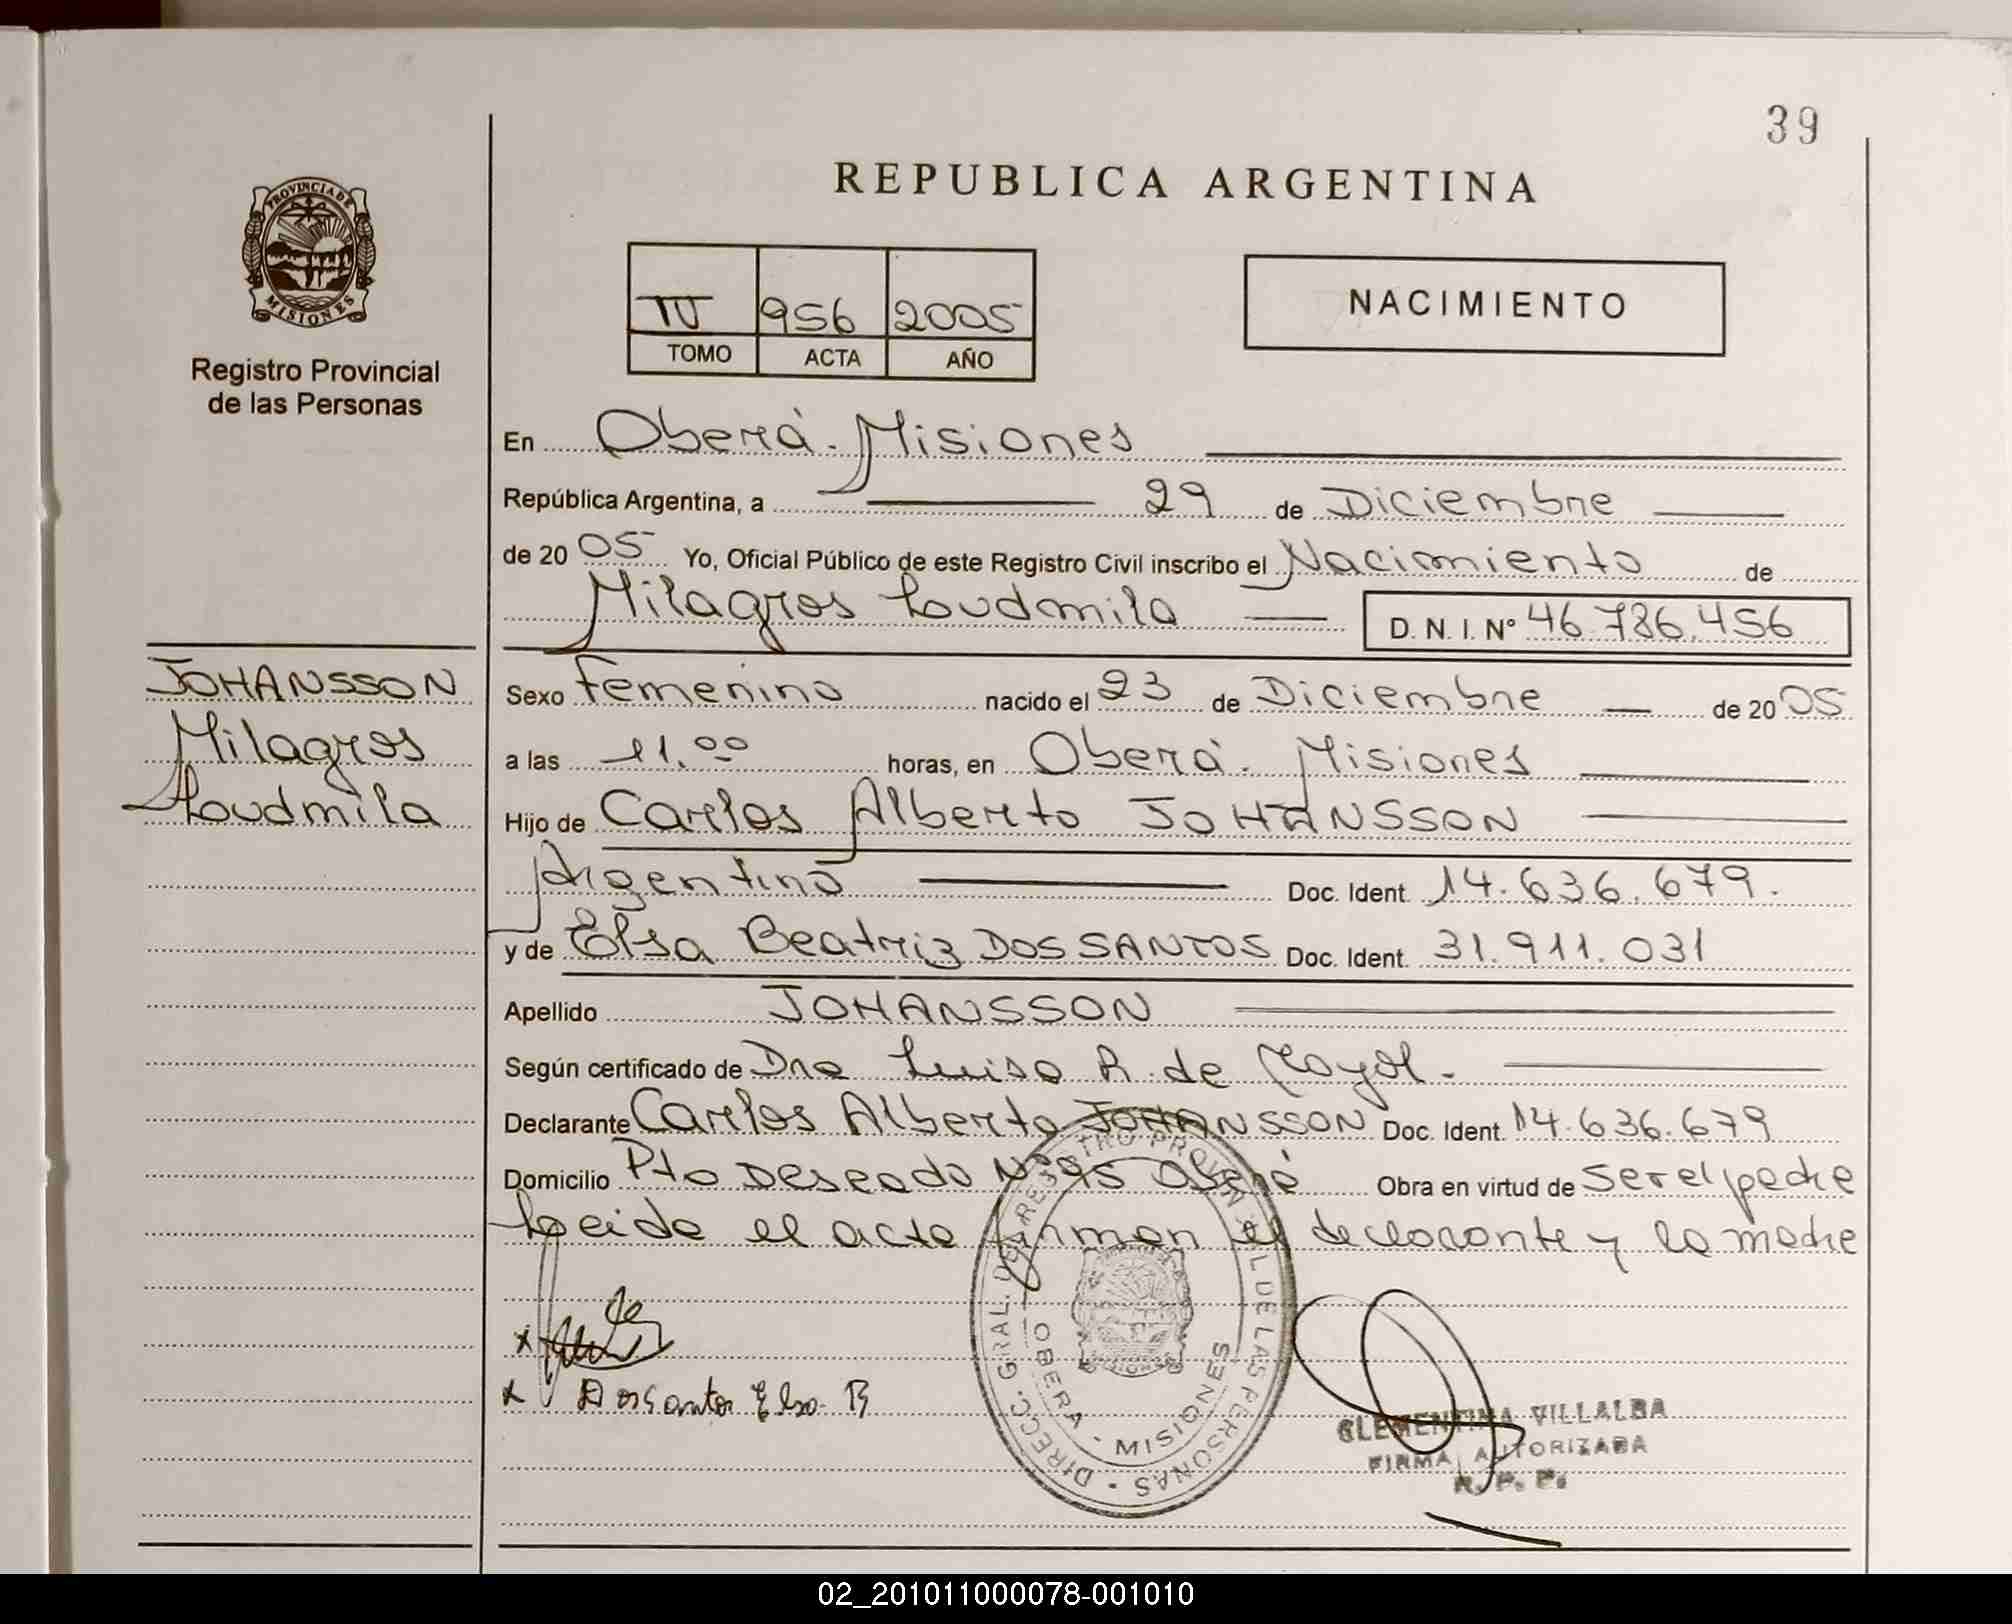 39
REPUBLICA ARGENTINA
PROVINCIA DE
MISIONES
Registro Provincial
de las Personas
956 2005
TOMO ACTA AÑO
NACIMIENTO
En Oberá. Misiones
República Argentina, a 29 de Diciembre
de 20 05 Yo, Oficial Público de este Registro Civil inscribo el Nacimiento de
Milagros Loudmila D. N. I. Nº 46.786.456
JOHANSSON
Milagros
Loudmila
Sexo Femenino nacido el 23 de Diciembre de 20 05
a las 11.00 horas, en Oberá. Misiones
Hijo de Carlos Alberto JOHANSSON
Argentino Doc. Ident. 14.636.679.
y de Elsa Beatriz DOS SANTOS Doc. Ident. 31.911.031
Apellido JOHANSSON
Según certificado de Dra Luisa R. de
Declarante Carlos Alberto JOHANSSON Doc. Ident. 14.636.679
Domicilio Pto Deseado Oberá Obra en virtud de ser el padre
Leida el acta firman el declarante y la madre
Dossantos Elsa B
DIRECC. GRAL. DEL REGISTRO PROVINCIAL DE LAS PERSONAS
OBERA - MISIONES
CLEMENTINA VILLALBA
FIRMA AUTORIZADA
R. P. P.
02_201011000078-001010